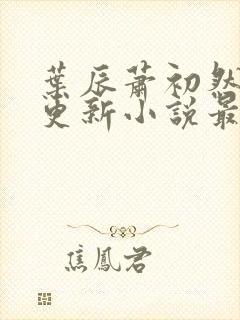 葉辰蕭初然
更新小說最
焦鳳君